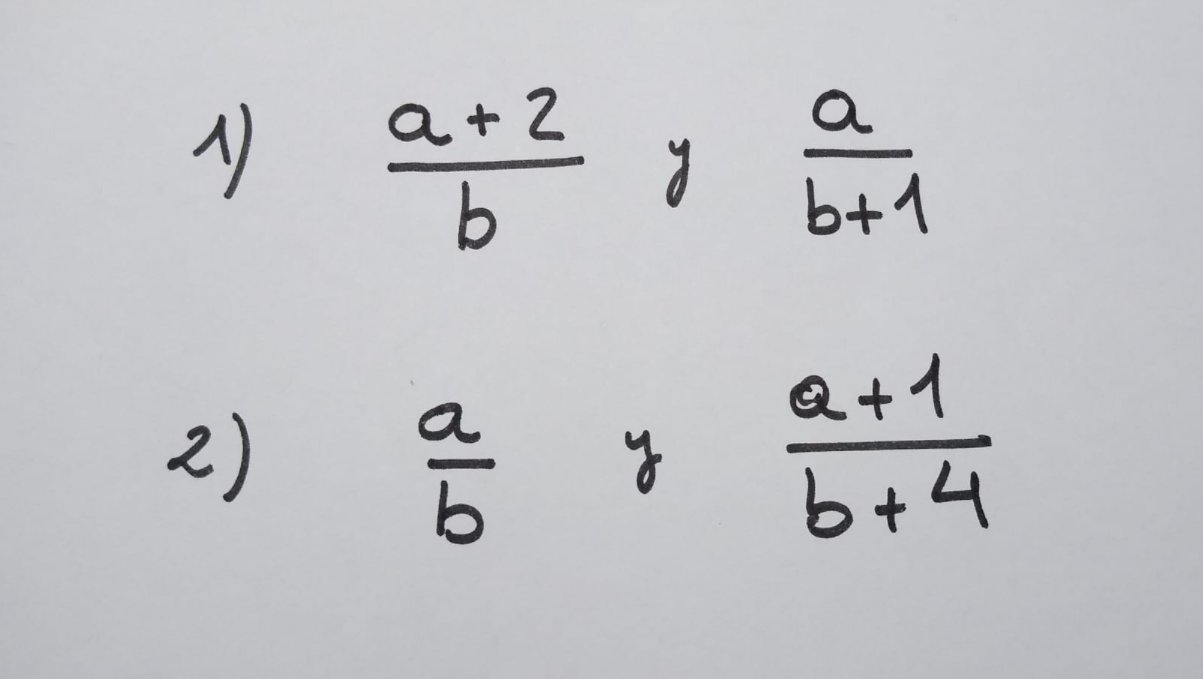 1) a + 2 / b y a / b+1
2) a / b y a+1 / b+4